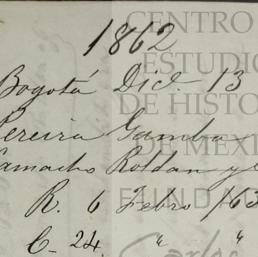 1862
Bogotá Dic. 13
Pereira Gamba
Camacho Roldan y
R. 6 Febro /63
C. 24 " "
CENTRO
ESTUDIO
DE HISTO
DE MEXI
FUND
Carlos